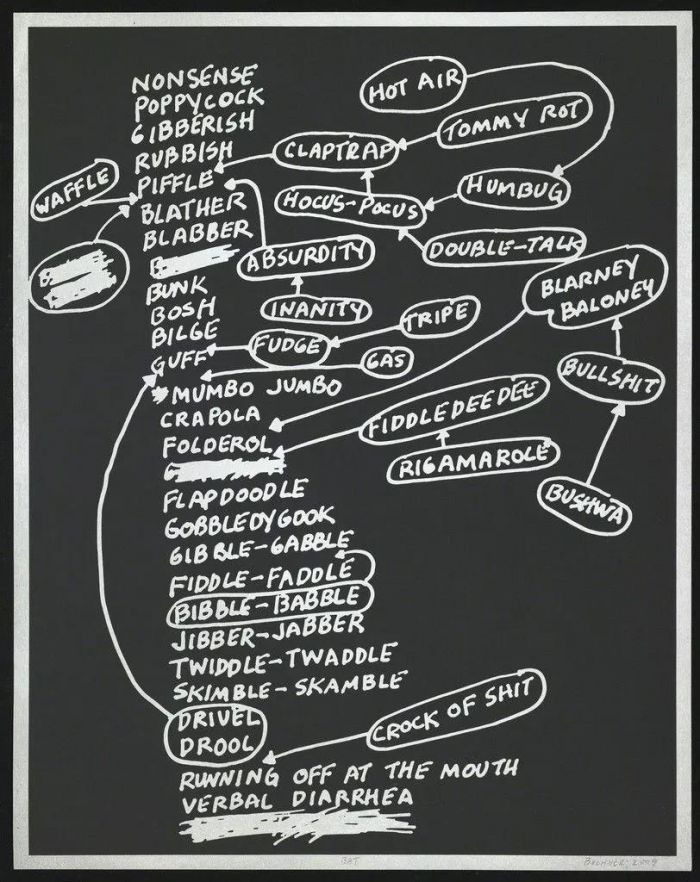 NONSENSE
POPPYCOCK
GIBBERISH
RUBBISH
PIFFLE
BLATHER
BLABBER
BUNK
BOSH
BILGE
GUFF
MUMBO JUMBO
CRAPOLA
FOLDEROL
FLAPDOODLE
GOBBLEDYGOOK
GIBBLE-GABBLE
FIDDLE-FADDLE
BIBBLE-BABBLE
JIBBER-JABBER
TWIDDLE-TWADDLE
SKIMBLE-SKAMBLE
DRIVEL
DROOL
RUNNING OFF AT THE MOUTH
VERBAL DIARRHEA
WAFFLE
HOT AIR
TOMMY ROT
CLAPTRAP
HUMBUG
HOCUS-POCUS
DOUBLE-TALK
ABSURDITY
INANITY
BLARNEY
BALONEY
TRIPE
FUDGE
GAS
BULLSHIT
FIDDLEDEEDEE
RIGAMAROLE
BUSHWA
CROCK OF SHIT
BAT